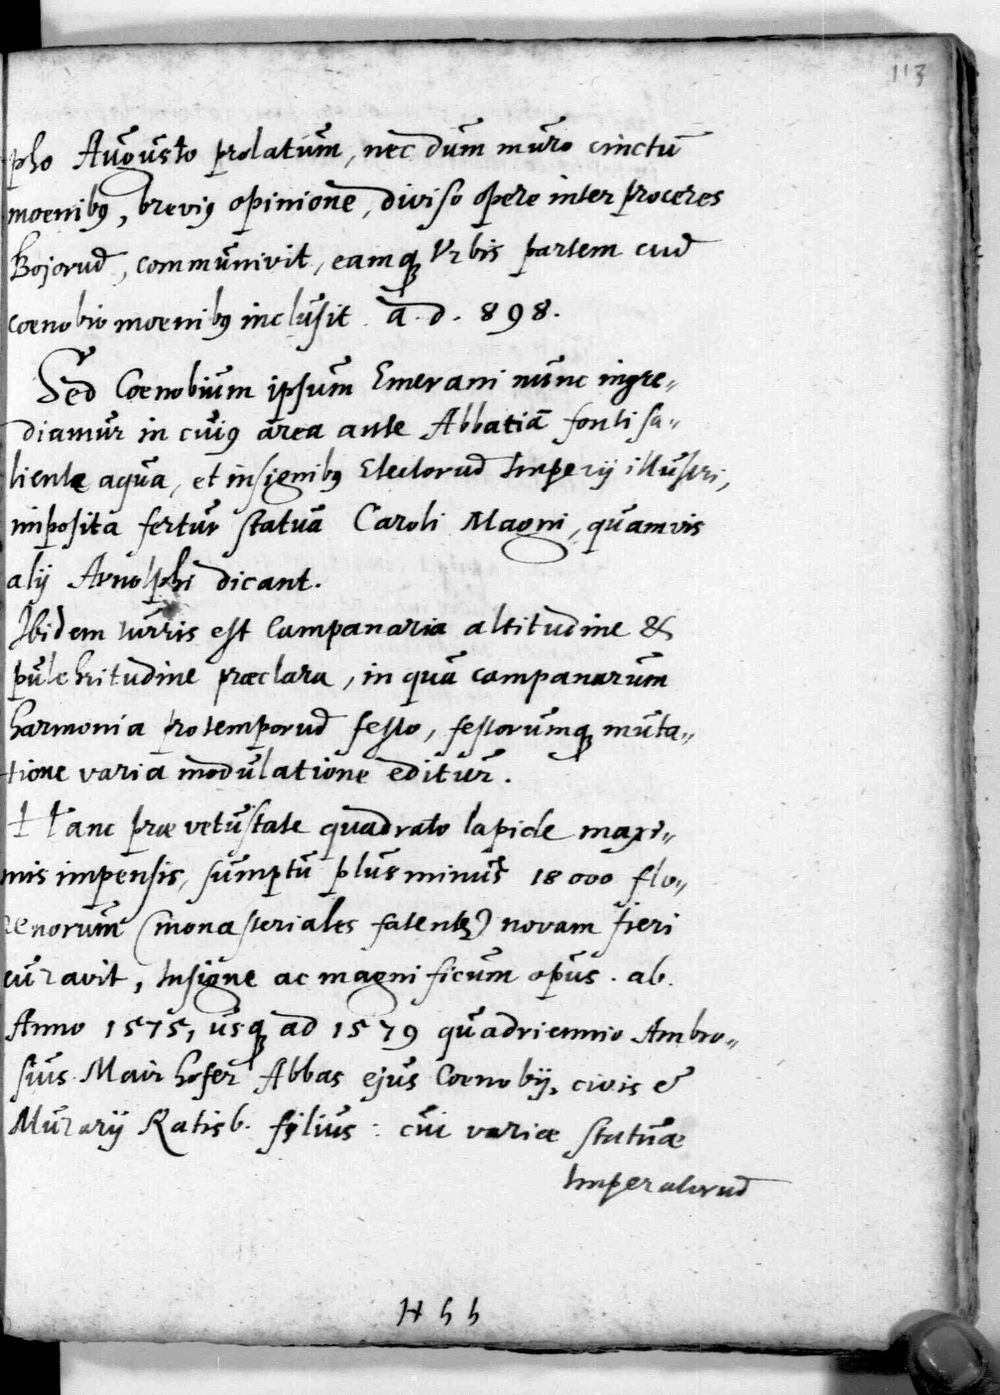 113
pho Augusto prolatum, nec dum muro cinctū
moenibꝯ, breviꝯ opinione, diviso opere inter proceres
Bojorud, communivit, eamqꝫ Vrbis partem cud
coenobio moenibꝯ inclusit a. d. 898.
Sed Coenobium ipsum Emerani nunc ingre„
diamur in cuiꝯ area ante Abbatiā fonti sa„
liente aqua, et insignibꝯ Electorud Imperij illustri,
imposita fertur statua Caroli Magni, quamvis
alij Arnolphi dicant.
Ibidem turris est Campanaria altitudine &
pulchritudine præclara, in qua campanarum
harmonia pro temporud festo, festorumqꝫ muta„
tione varia modulatione editur.
Hanc præ vetustate quadrato lapide maxi„
mis impensis, sumptu plus minus 18000 flo„
renorum (monasteriales fatentꝫ) novam fieri
curavit, Insigne ac magnificum opus. ab.
Anno 1575, usqꝫ ad 1579 quadriennio Ambro„
sius Mairhofer Abbas ejus Coenobij, civis &
Murarij Ratisb. filius: cui variæ statuæ
Imperatorud
H h h